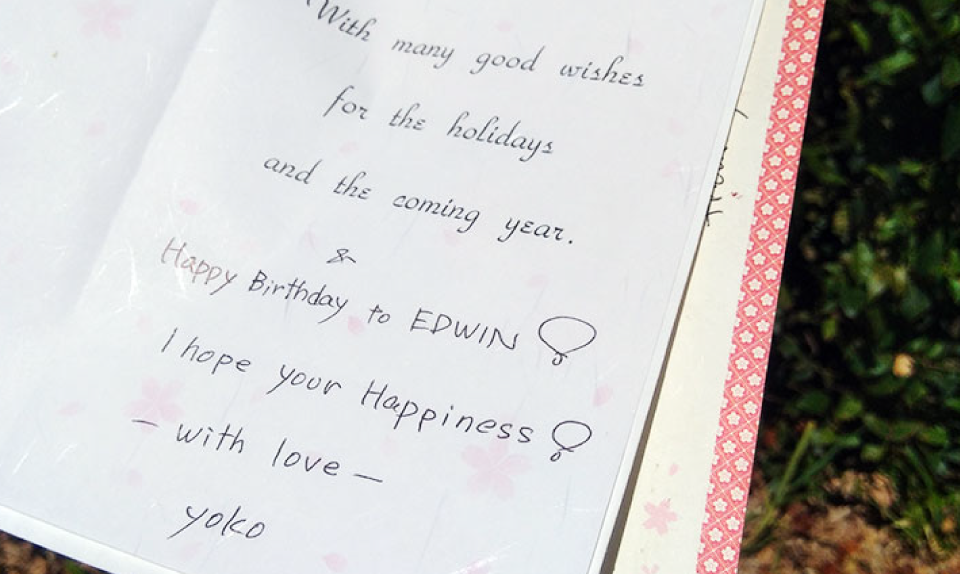 With many good wishes
for the holidays
and the coming year.
&
Happy Birthday to EDWIN!
I hope your Happiness!
- with love -
yoko